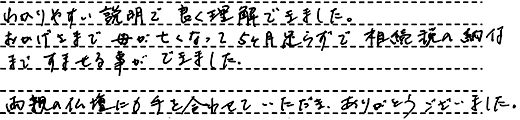 わかりやすい説明で良く理解できました。
おかげさまで母が亡くなって5ヶ月足らずで相続税の納付
まですませる事ができました。
両親の仏壇にも手を合わせていただき、ありがとうございました。